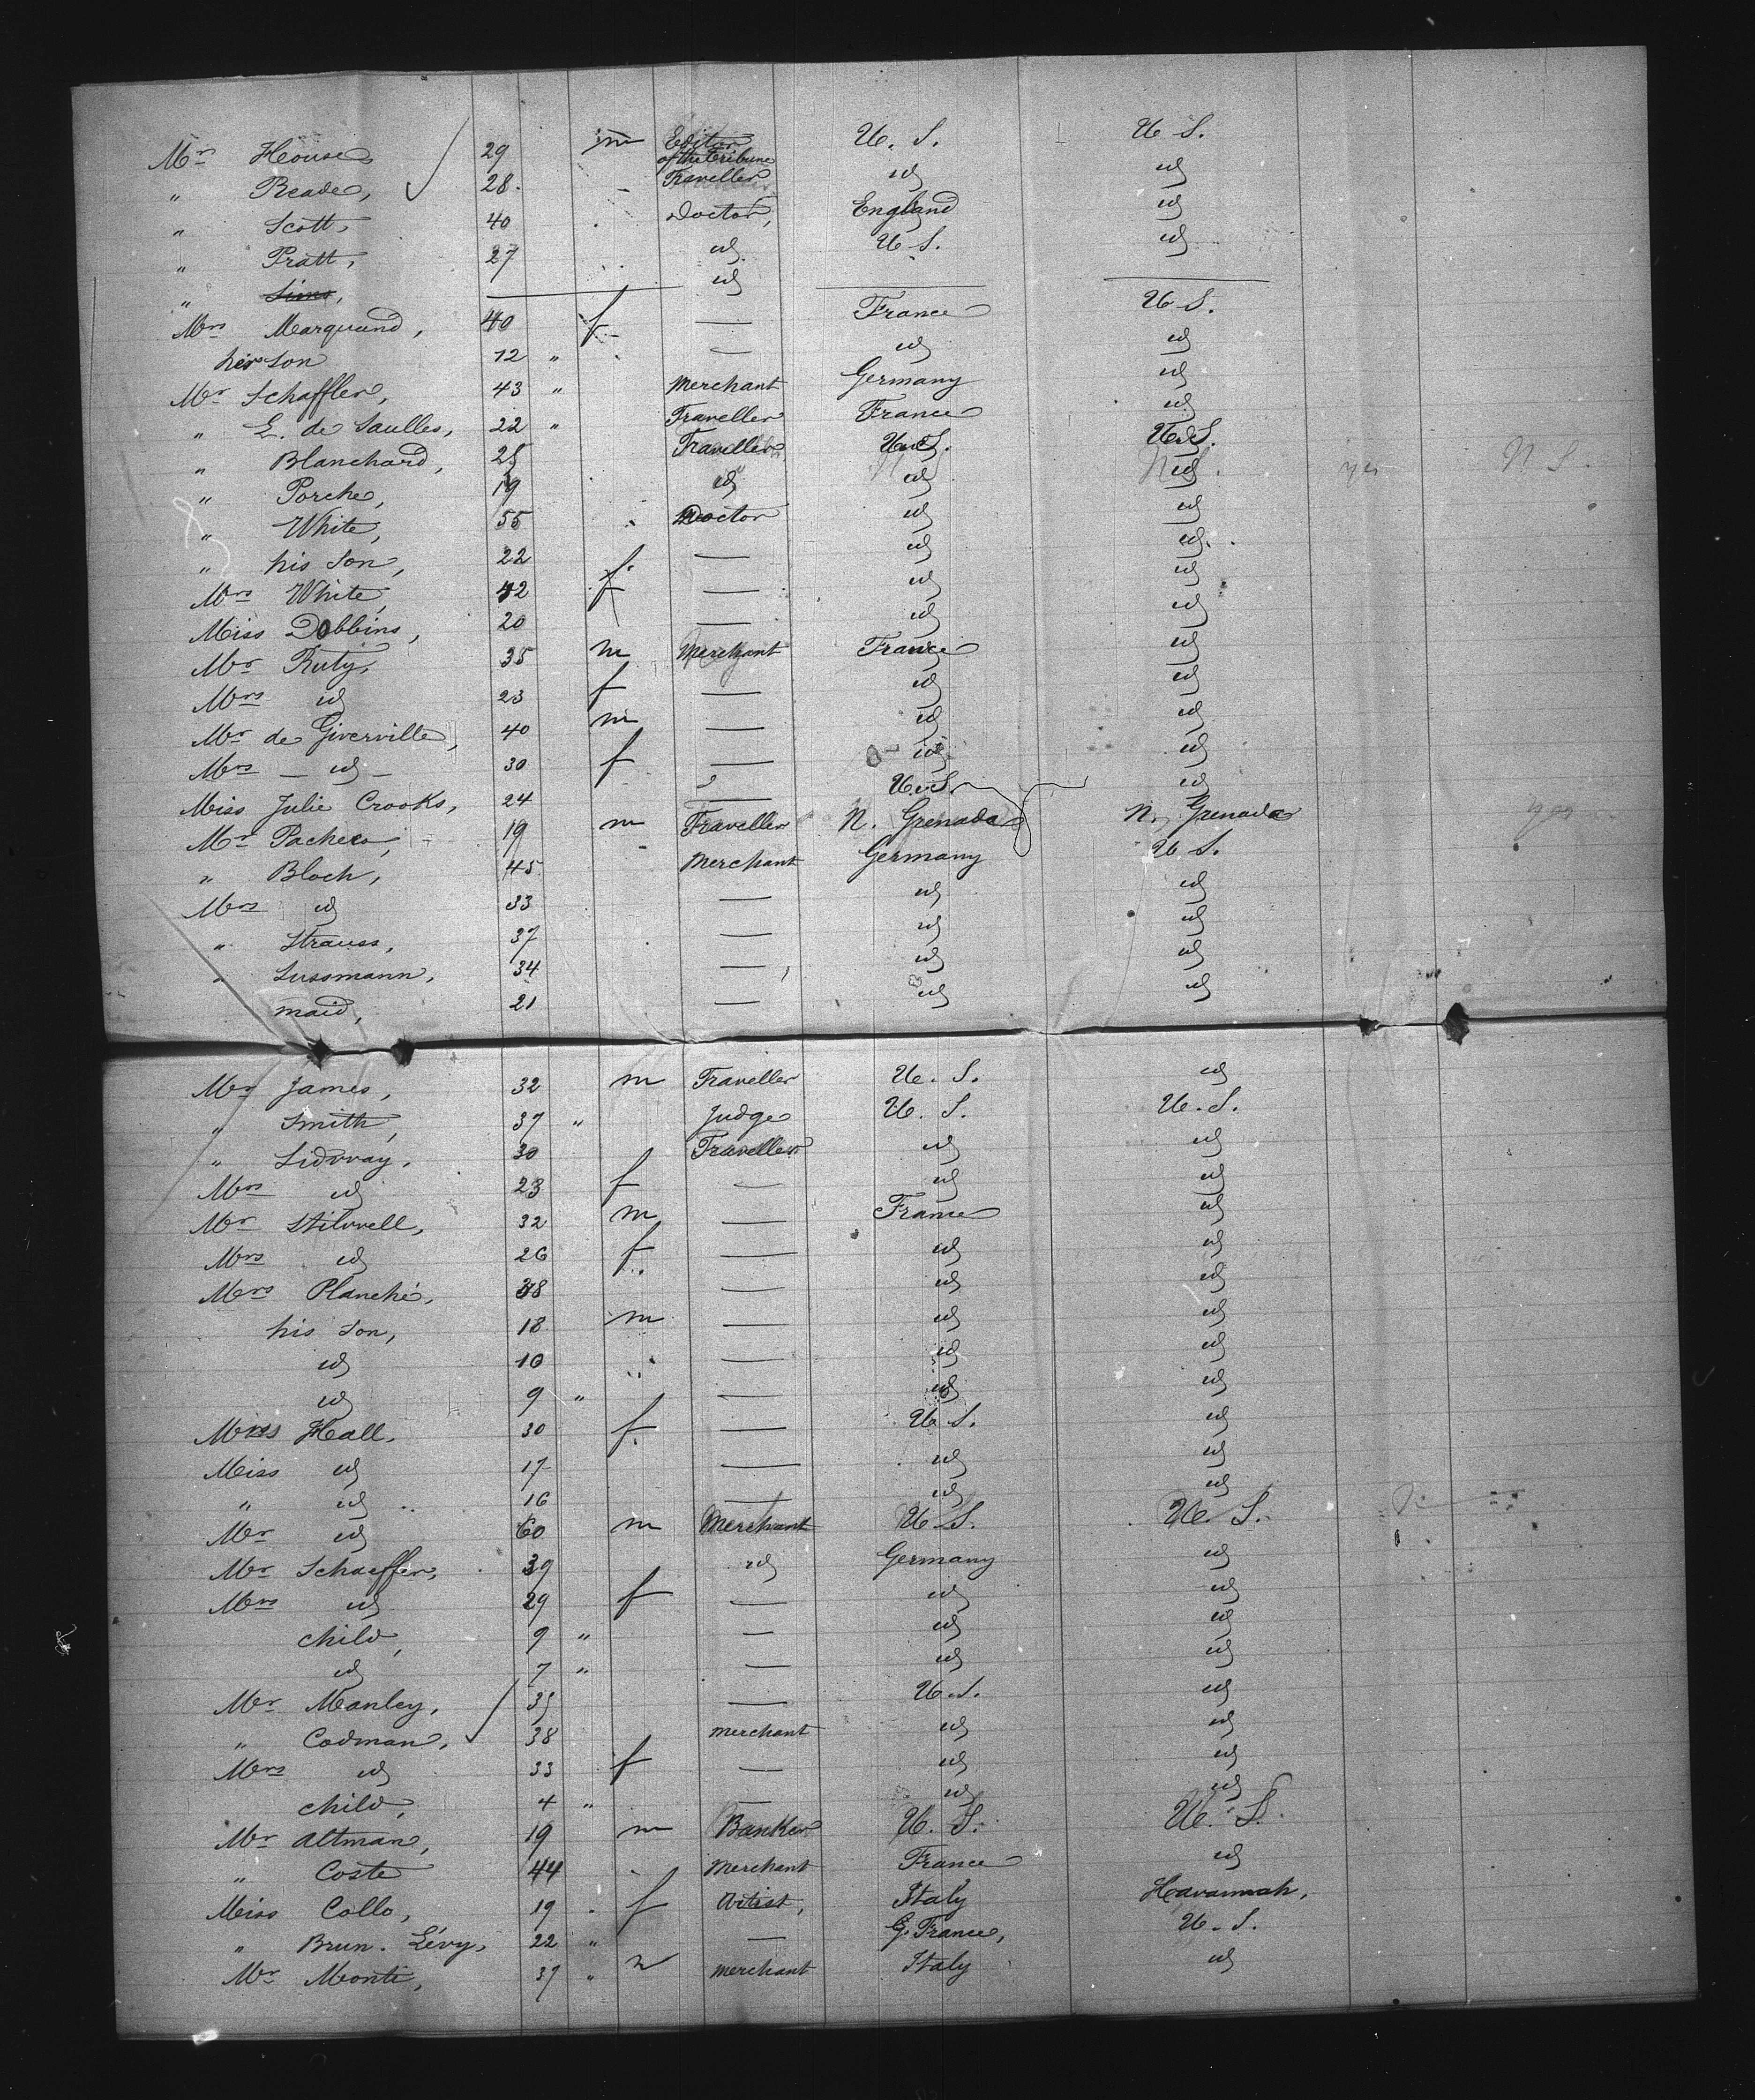 Mr House, 29 m Editor of the Tribune U. S. U S.
" Reade, 28. Traveller id id
" Scott, 40 Doctor, England id
" Pratt, 27 id. U S. id
" Sims, id
Mrs Marquand, 40 f — France U S.
her son 12 " — id id
Mr Schaffler, 43 " Merchant Germany id
" E. de Saulles, 22 " Traveller France id
" Blanchard, 25 Traveller U.S. U.S. yes N S.
" Porche, 19 id id id
" White, 55 Doctor id id
" his son, 22 — id id.
Mrs White, 42 f — id id
Miss Dobbins, 20 — id id
Mr Ruty, 35 m Merchant France id
Mrs id 23 f — id id
Mr de Giverville, 40 m — id id
Mrs — id — 30 f — id id
Miss Julie Crooks, 24 " — U.S. id
Mr Pacheco, 19 m Traveller N. Grenada N. Grenada
" Bloch, 45 Merchant Germany U S.
Mrs id 33 — id id
" Strauss, 37 — id id
" Sussmann, 34 — id id
maid, 21 — id id
Mr James, 32 m Traveller U. S. id
" Smith, 37 " Judge U. S. U. S.
" Sidvray, 30 Traveller id id
Mrs id 23 f — id id
Mr Stilwell, 32 m — France id
Mrs id 26 f — id id
Mrs Planché, 38 — id id
his son, 18 m — id id
id 10 — id id
id 9 " — id id
Mrs Hall, 30 f. — U S. id
Miss id 17 — id id
" id 16 — id id
Mr id 60 m Merchant U S. U. S.
Mr Schaeffer, 39 id Germany id
Mrs id 29 f — id id
child, 9 " — id id
id 7 " — id id
Mr Manley, 35 — U.S. id
" Codman, 38 merchant id id
Mrs id 33 f — id id
child, 4 " — id id
Mr Altman, 19 m Banker U. S. U. S.
" Coste 44 Merchant France id
Miss Collo, 19 f Artist, Italy Havannah,
" Brun. Lévy, 22 " — G. France, U. S.
Mr Monti, 37 " m merchant Italy id